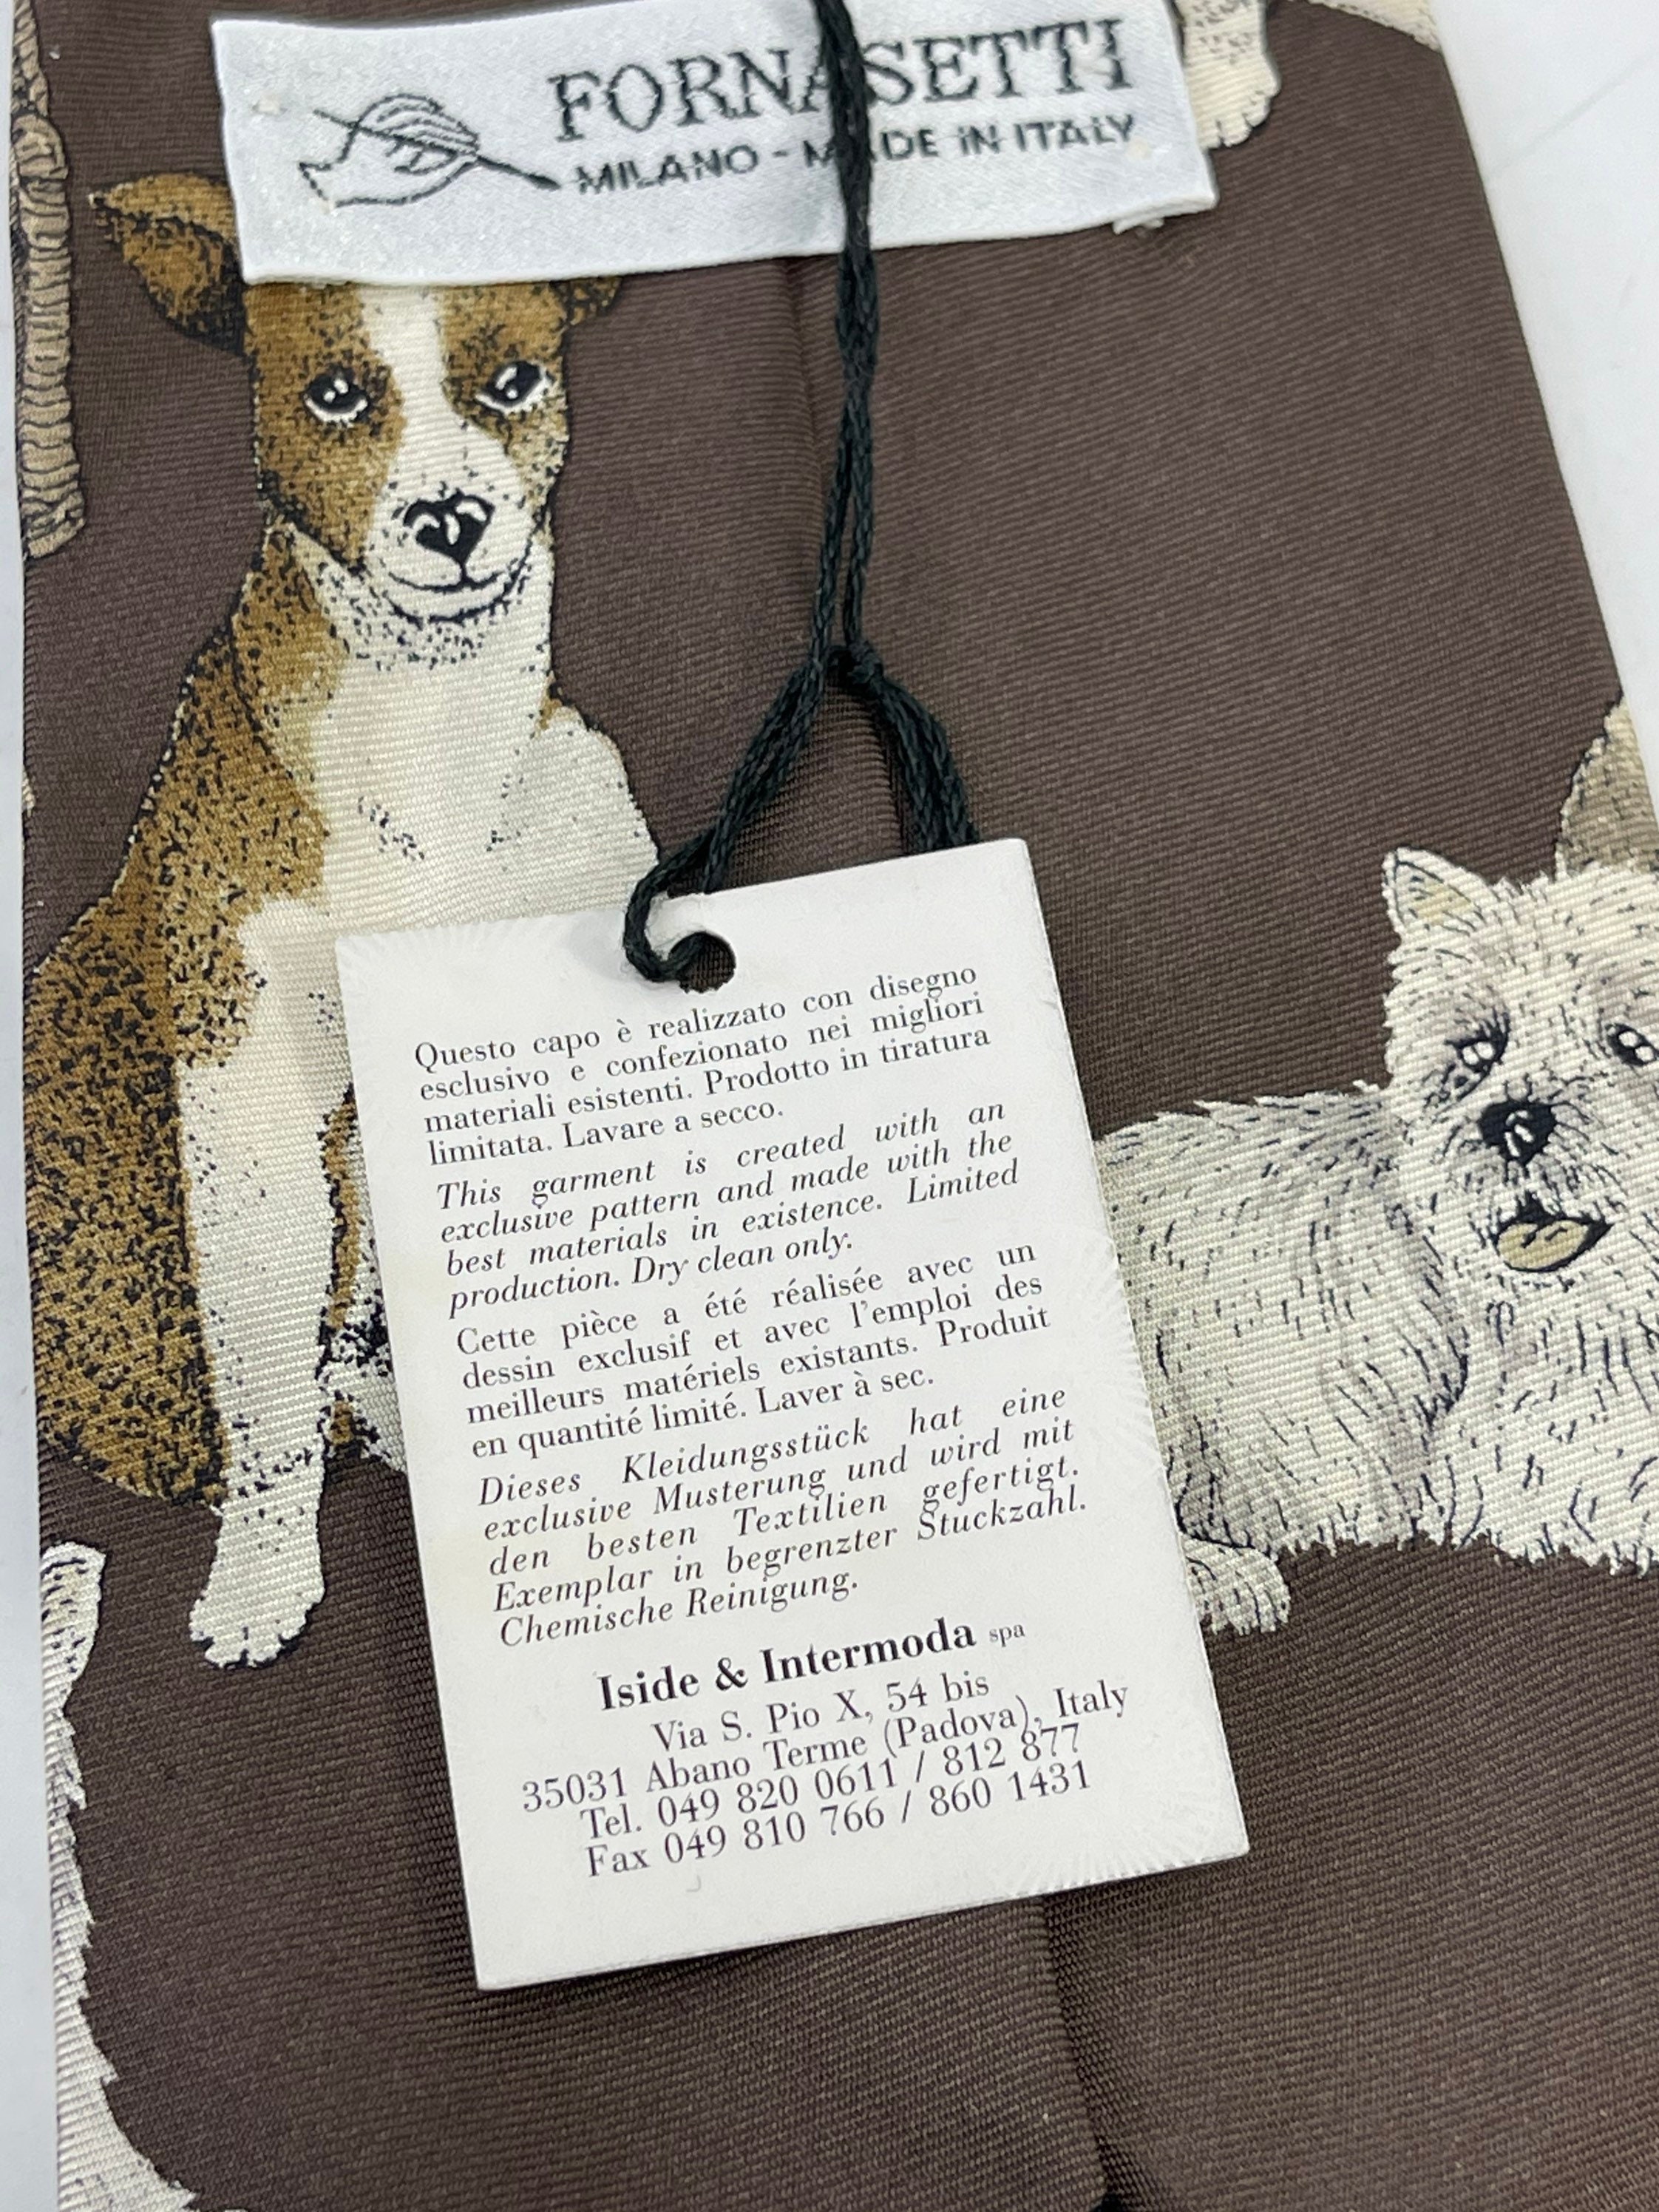 FORNASETTI
MILANO - MADE IN ITALY
Questo capo è realizzato con disegno
esclusivo e confezionato nei migliori
materiali esistenti. Prodotto in tiratura
limitata. Lavare a secco.
This garment is created with an
exclusive pattern and made with the
best materials in existence. Limited
production. Dry clean only.
Cette pièce a été réalisée avec un
dessin exclusif et avec l'emploi des
meilleurs matériels existants. Produit
en quantité limité. Laver à sec.
Dieses Kleidungsstück hat eine
exclusive Musterung und wird mit
den besten Textilien gefertigt.
Exemplar in begrenzter Stuckzahl.
Chemische Reinigung.
Iside & Intermoda spa
Via S. Pio X, 54 bis
35031 Abano Terme (Padova), Italy
Tel. 049 820 0611 / 812 877
Fax 049 810 766 / 860 1431